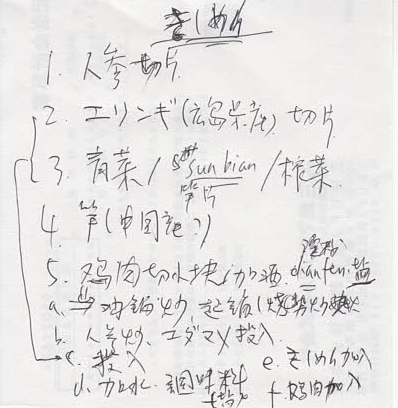 きしめん
1. 人参切片
2. エリンギ(広島県産) 切片
3. 青菜/ Sun bian 笋片/榨菜
4. 笋(中国産?)
5. 鸡肉切小块/加酒 淀粉 dianfen. 盐
a. 油锅炒, 起锅
b. 人参炒, エダマメ投入
c. 投入 e. きしめん加入
d. 加水. 調味料 f. 鸡肉加入